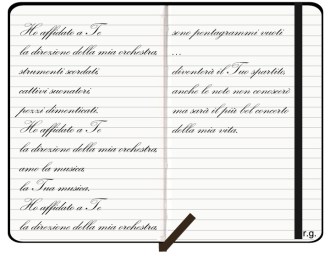 Ho affidato a Te
la direzione della mia orchestra,
strumenti scordati,
cattivi suonatori,
pezzi dimenticati.
Ho affidato a Te
la direzione della mia orchestra,
amo la musica,
la Tua musica.
Ho affidato a Te
la direzione della mia orchestra,
sono pentagrammi vuoti
...
diventerà il Tuo spartito,
anche le note non conoscerò
ma sarà il più bel concerto
della mia vita.
r.g.